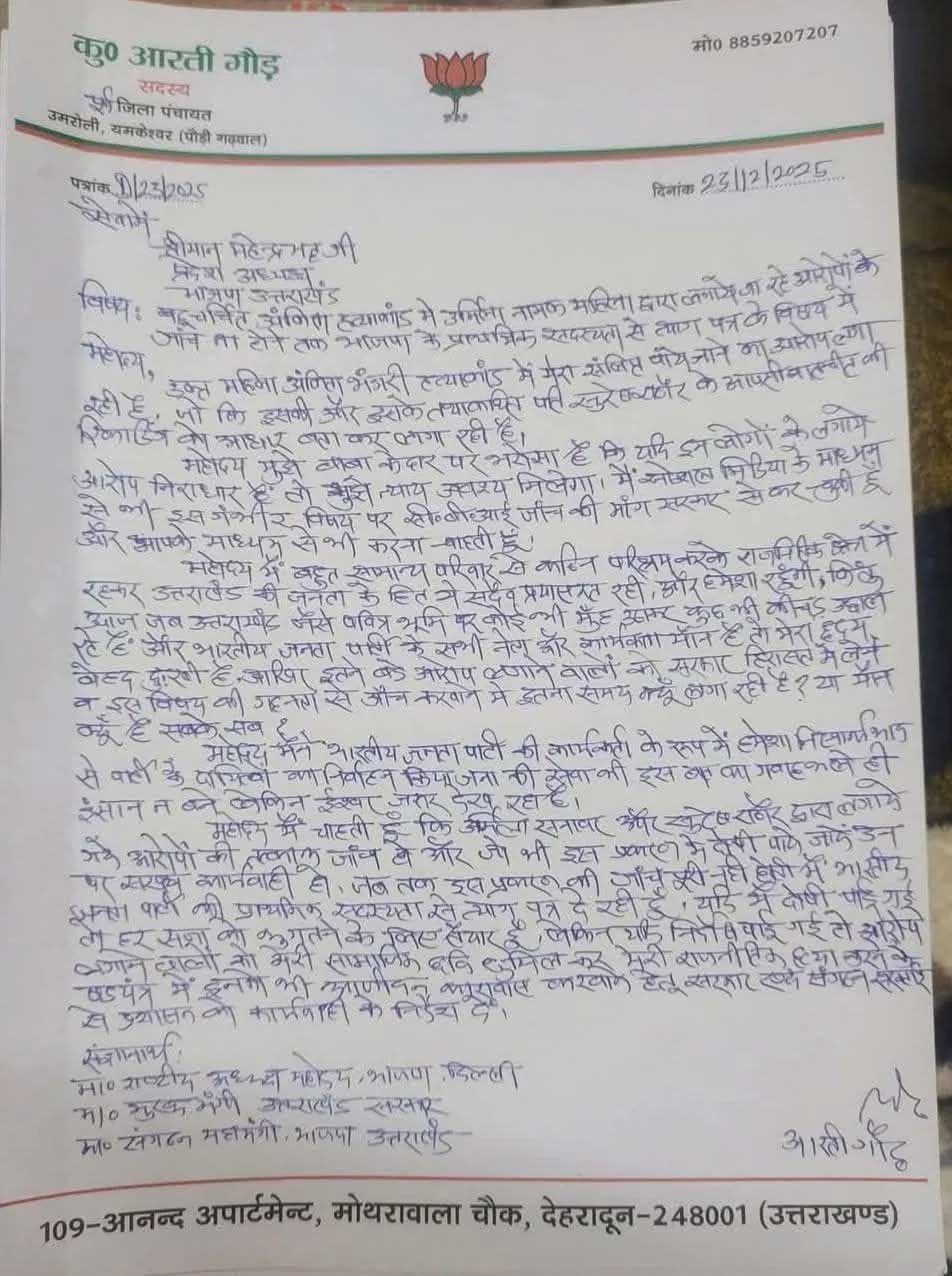 कु0 आरती गौड़
मो0 8859207207
सदस्य
पूर्व जिला पंचायत
उमरोली, यमकेश्वर (पौड़ी गढ़वाल)
पत्रांक D/23/2025
दिनांक 23/12/2025
सेवामें
श्रीमान महेन्द्र भट्ट जी
प्रदेश अध्यक्ष
भाजपा उत्तराखंड
विषय: बहुचर्चित अंकिता हत्याकांड मे उर्मिला नामक महिला द्वारा लगाये जा रहे आरोपों के
जांच ना होने तक भाजपा के प्राथमिक सदस्यता से त्याग पत्र के विषय में
महोदय,
उक्त महिला अंकिता भंडारी हत्याकांड में मेरा संलिप्त पाये जाने का आरोप लगा
रही है, जो कि इसकी और इसके तथाकथित पति सुरेश राठौर के आपसी वातचीत की
रिकार्डिंग को आधार बना कर लगा रही है।
महोदय मुझे बाबा केदार पर भरोसा है कि यदि इन लोगों के लगाये
आरोप निराधार है तो मुझे न्याय अवश्य मिलेगा। मैं सोशल मिडिया के माध्यम
से भी इस गंभीर विषय पर सी०बी०आई जाँच की मांग सरकार से कर चुकी हूँ
और आपके माध्यम से भी करना चाहती हूँ।
महोदय मैं बहुत सामान्य परिवार से कठिन परिश्रम करके राजनितिक क्षेत्र में
रहकर उत्तराखंड की जनता के हित मे सदैव प्रयासरत रही, और हमेशा रहूंगी, किंतु
आज जब उत्तराखंड जैसे पवित्र भूमि पर कोई भी मुँह उठाकर कुछ भी कीचड़ उछाल
रहे हैं और भारतीय जनता पार्टी के सभी नेता और कार्यकर्ता मौन है तो मेरा हृदय
बेहद दुःखी है, आखिर इतने बडे आरोप लगाने वालों को सरकार हिरासत में लेने
व इस विषय की गहनता से जाँच करवाने मे इतना समय क्यूँ लगा रही है? या मौन
क्यूँ है सबके सब?
महोदय मैने भारतीय जनता पार्टी की कार्यकर्ता के रूप में हमेशा निस्वार्थ भाव
से पार्टी के दायित्वों का निर्वाहन किया, जनता की सेवा की इस बात का गवाह भले ही
इंसान न बने लेकिन ईश्वर जरूर देख रहा है।
महोदय मैं चाहती हूँ कि उर्मिला सनावर और सुरेश राठौर द्वारा लगाये
गये आरोपों की तत्काल जांच हो और जो भी इस प्रकरण के दोषी पाये जाऐं उन
पर सख्त कार्यवाही हो, जब तक इस प्रकरण की जाँच पूरी नही होती मैं भारतीय
जनता पार्टी की प्राथमिक सदस्यता से त्याग पत्र दे रही हूँ, यदि मैं दोषी पाई गई
तो हर सजा को भुगतने के लिए तैयार हूँ, लेकिन यदि निर्दोष पाई गई तो आरोप
लगाने वालों को मेरी सामाजिक छवि धूमिल कर मेरी राजनीतिक हत्या करने के
षडयंत्र में इनको भी आजीवन कारावास करवाने हेतू सरकार एवं संगठन सरकार
से प्रशासन को कार्यवाही के निर्देश दें।
संज्ञानार्थ:
मा० राष्ट्रीय अध्यक्ष महोदय, भाजपा, दिल्ली
मा० मुख्य मंत्री उत्तराखंड सरकार
मा० संगठन महामंत्री, भाजपा उत्तराखंड
आरती गौड़
109-आनन्द अपार्टमेन्ट, मोथरावाला चौक, देहरादून-248001 (उत्तराखण्ड)